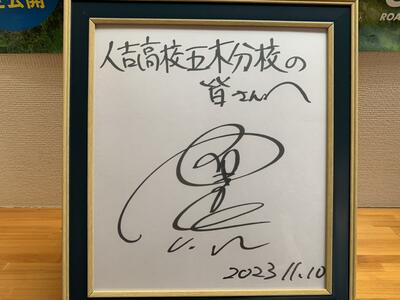 公開
ROA
人吉高校五木分校の
皆さんへ
2023 11.10